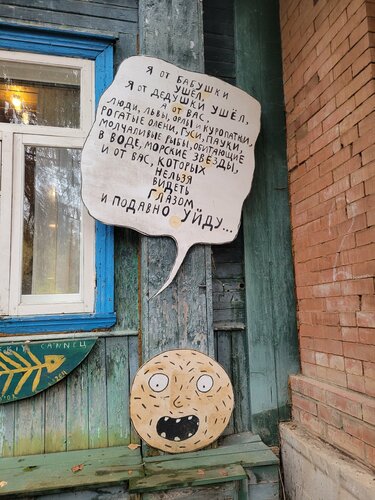 Я ОТ БАБУШКИ
УШЁЛ,
Я ОТ ДЕДУШКИ УШЁЛ,
А ОТ ВАС,
ЛЮДИ, ЛЬВЫ, ОРЛЫ И КУРОПАТКИ,
РОГАТЫЕ ОЛЕНИ, ГУСИ, ПАУКИ,
МОЛЧАЛИВЫЕ РЫБЫ, ОБИТАЮЩИЕ
В ВОДЕ, МОРСКИЕ ЗВЁЗДЫ,
И ОТ ВАС, КОТОРЫХ
НЕЛЬЗЯ
ВИДЕТЬ
ГЛАЗОМ
И ПОДАВНО УЙДУ...